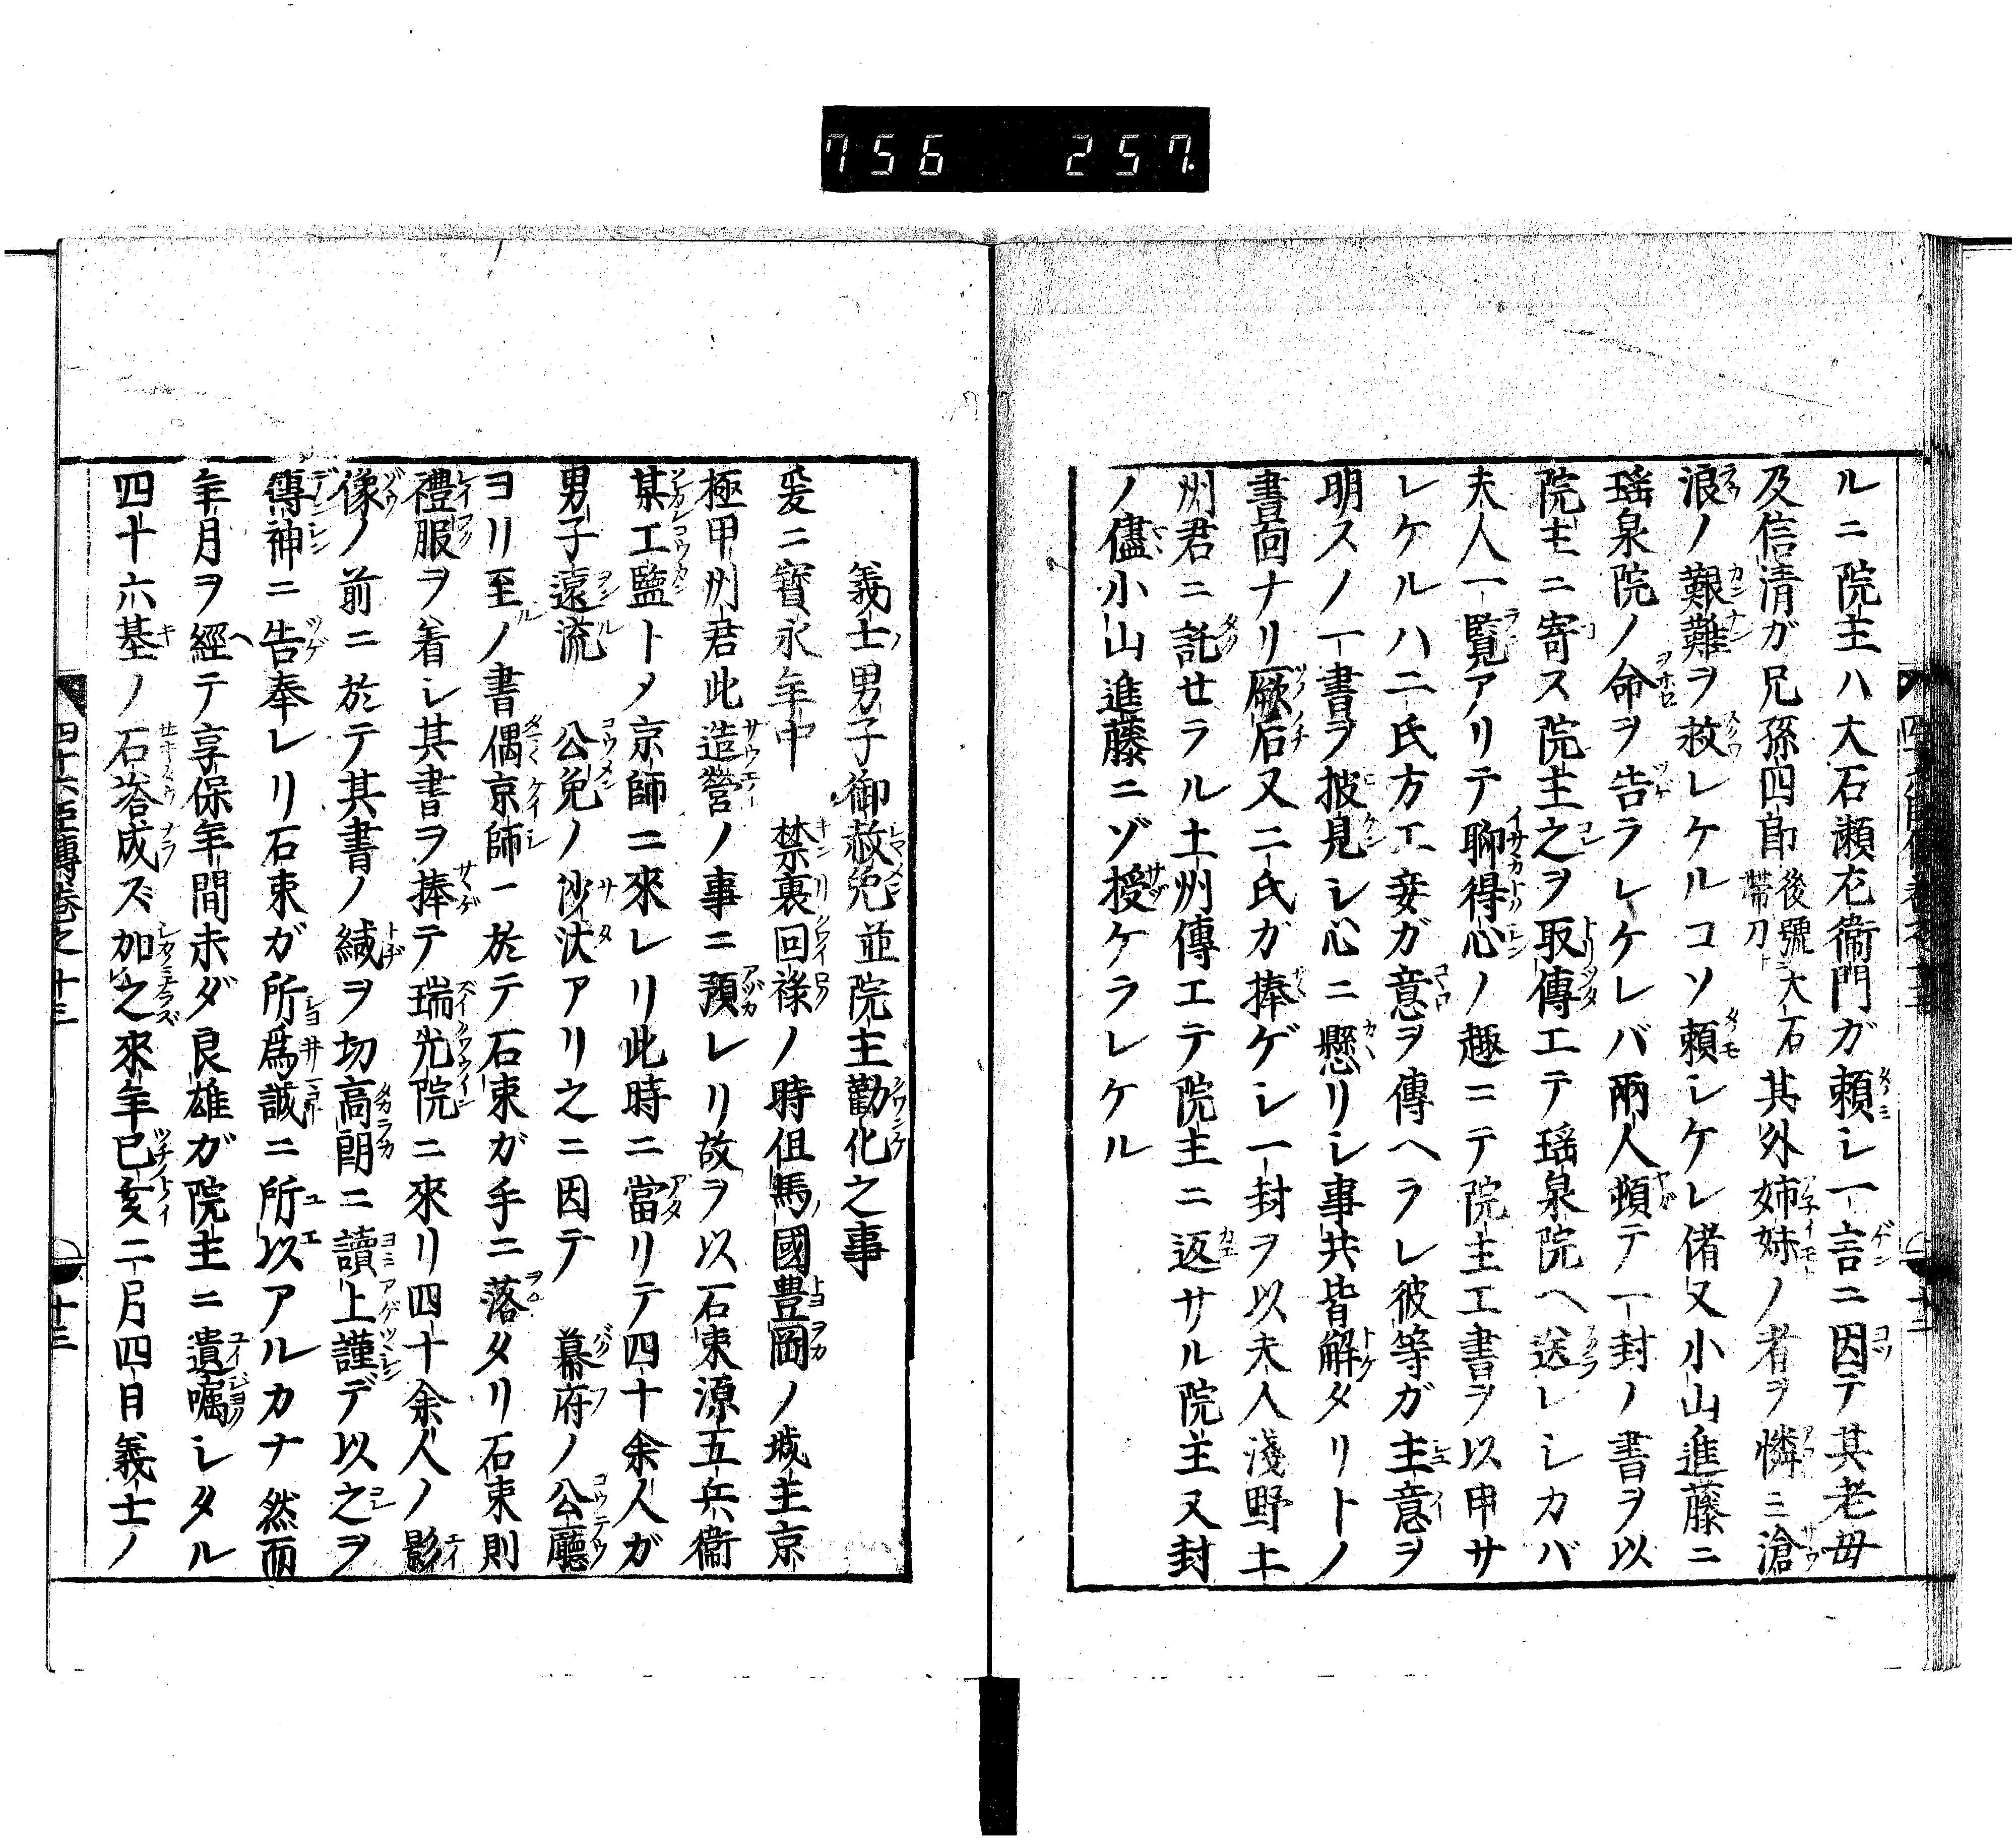 756 257
ルニ院主ハ大石瀬左衛門ガ頼シ一言ニ因テ其老母
及信清ガ兄孫四郎後號大石帯刀ト其外姉妹ノ者ヲ憐ミ滄
浪ノ艱難ヲ救レケルコソ頼シケレ偖又小山進藤ニ
瑶泉院ノ命ヲ告ラレケレバ兩人頓テ一封ノ書ヲ以
院主ニ寄ス院主之ヲ取傳エテ瑶泉院ヘ送レシカバ
夫人一覧アリテ聊得心ノ趣ニテ院主エ書ヲ以申サ
レケルハ二氏方エ妾ガ意ヲ傳ヘラレ彼等ガ主意ヲ
明スノ一書ヲ披見シ心ニ懸リシ事共皆解タリトノ
書面ナリ厥后又二氏ガ捧ゲシ一封ヲ以夫人淺野土
州君ニ託セラル土州傳エテ院主ニ返サル院主又封
ノ儘小山進藤ニゾ授ケラレケル
義士男子御赦免並院主勸化之事
爰ニ寳永年中 禁裏回祿ノ時但馬國豊岡ノ城主京
極甲州君此造營ノ事ニ預レリ故ヲ以石束源五兵衛
某工監トメ京師ニ來レリ此時ニ當リテ四十余人ガ
男子遠流 公免ノ沙汰アリ之ニ因テ 幕府ノ公廳
ヨリ至ルノ書偶京師ニ於テ石束ガ手ニ落タリ石束則
禮服ヲ着シ其書ヲ捧テ瑞光院ニ來リ四十余人ノ影
像ノ前ニ於テ其書ノ緘ヲ切高朗ニ讀上謹デ以之ヲ
傳神ニ告奉レリ石束ガ所爲誠ニ所以アルカナ然而
年月ヲ經テ享保年間未ダ良雄ガ院主ニ遺嘱シタル
四十六基ノ石塔成ズ加之來年已亥二月四日義士ノ
四十六臣傳巻之十三 十三